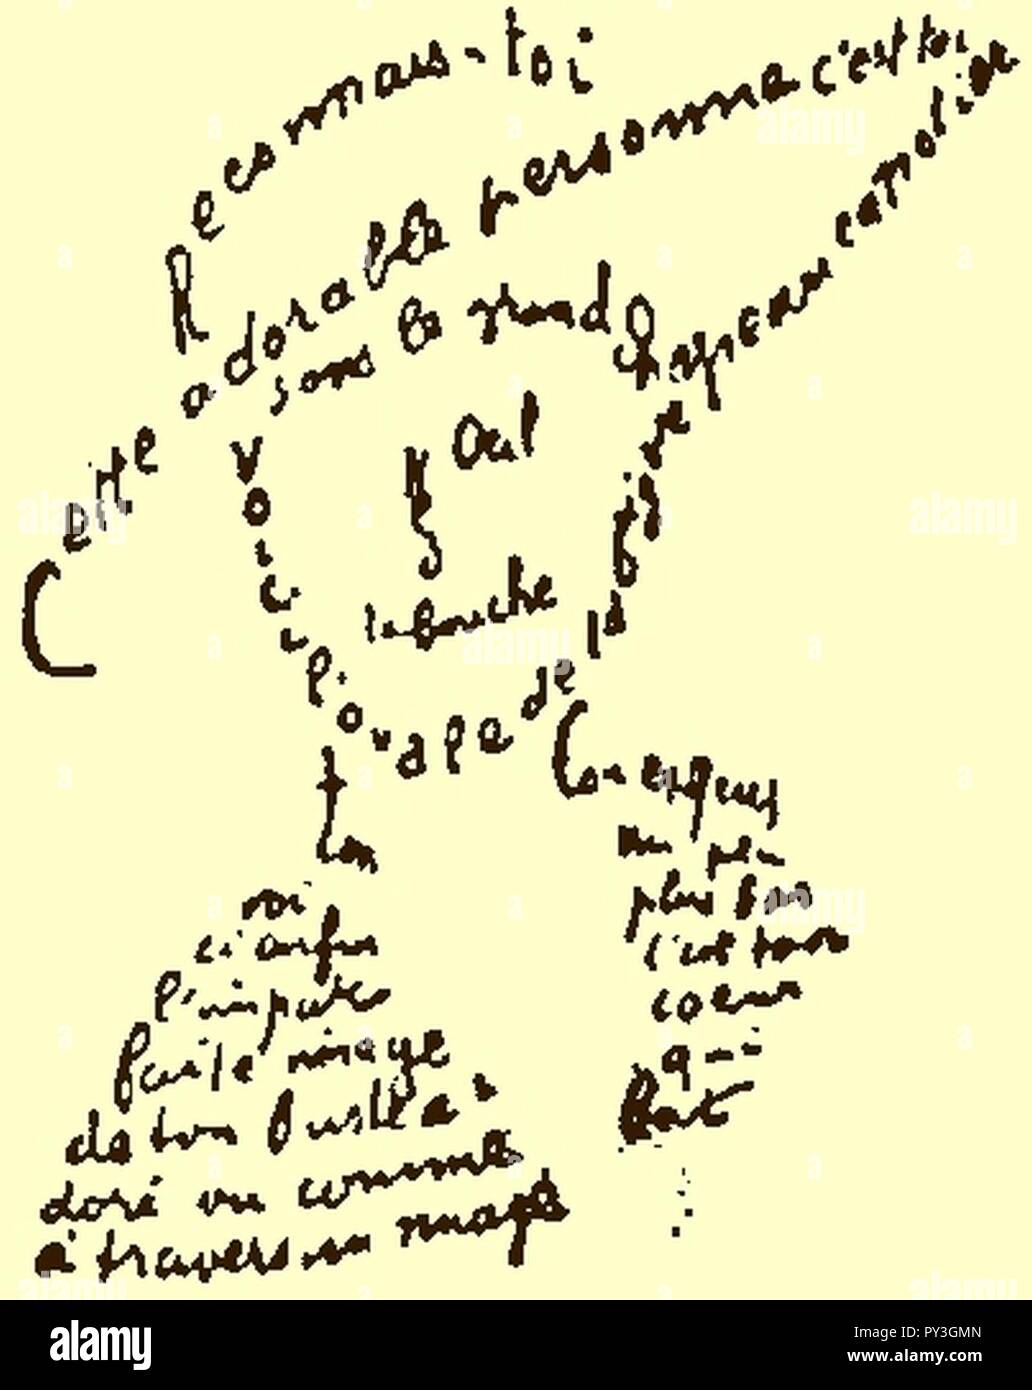 Reconnais-toi
Cette adorable personne c'est toi
sous le grand chapeau canotier
Oeil
Nez
la bouche
voici l'ovale de ta figure
Ton cou exquis
voi
ci enfin
l'imparfaite image
de ton buste a
doré vu comme
à travers un nuage
un peu
plus bas
c'est ton
coeur
qui
bat
alamy
Image ID: PY3GMN
www.alamy.com